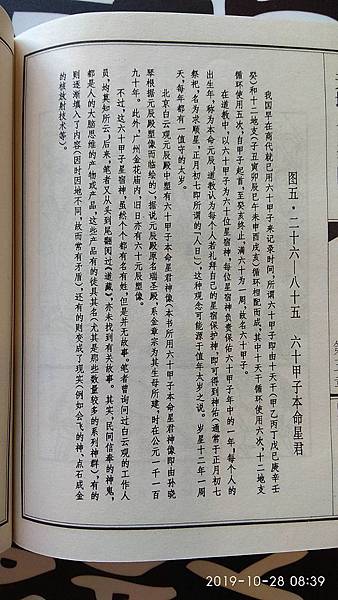 图五·二十六—八十五　六十甲子本命星君
我国早在商代就已用六十甲子来记录时间，所谓六十甲子即由十天干（甲乙丙丁戊己庚辛壬
癸）和十二地支（子丑寅卯辰巳午未申酉戌亥）循环相配而成，其中十天干循环使用六次，十二地支
循环使用五次，自甲子起首，至癸亥终止，满六十为一周，故名六十甲子。
在道教中，以六十甲子为六十位星宿神，每位星宿神负责保佑六十甲子年中的一年；每个人的
出生年，称为本命元辰，道教认为每个人若礼拜自己的星宿保护神，即可得到神佑（通常于正月初七
祭祀，名为求顺星，正月初七即所谓的「人日」），这种观念可能源于值年太岁之说。岁星十二年一周
天，每年都有一值守的太岁。
北京白云观元辰殿中塑有六十甲子本命星君神像（本书所用六十甲子本命星君神像即由孙晓
琴根据元辰殿塑像而临绘的）。据说元辰殿原名瑞圣殿，系金章宗为其生母所建，时在公元一千一百
九十年。此外，广州金花庙内，旧日亦有六十元辰塑像。
不过，这六十甲子星宿神，虽然个个都有名有姓，但是并无故事。笔者曾询问过白云观的工作人
员，均莫知所云，后来，笔者又从头到尾翻阅过《道藏》，亦未找到有关故事。其实，民间信奉的神鬼，
都是人的大脑思维的产物或产品，这些产品有的徒具其名（尤其是那些数量较多的系列神群），有的
则逐渐填入了内容（因时因地不同，故而常有矛盾），还有的则变成了现实（例如会飞的神、点石成金
的核放射技术等）。
2019-10-28 08:39